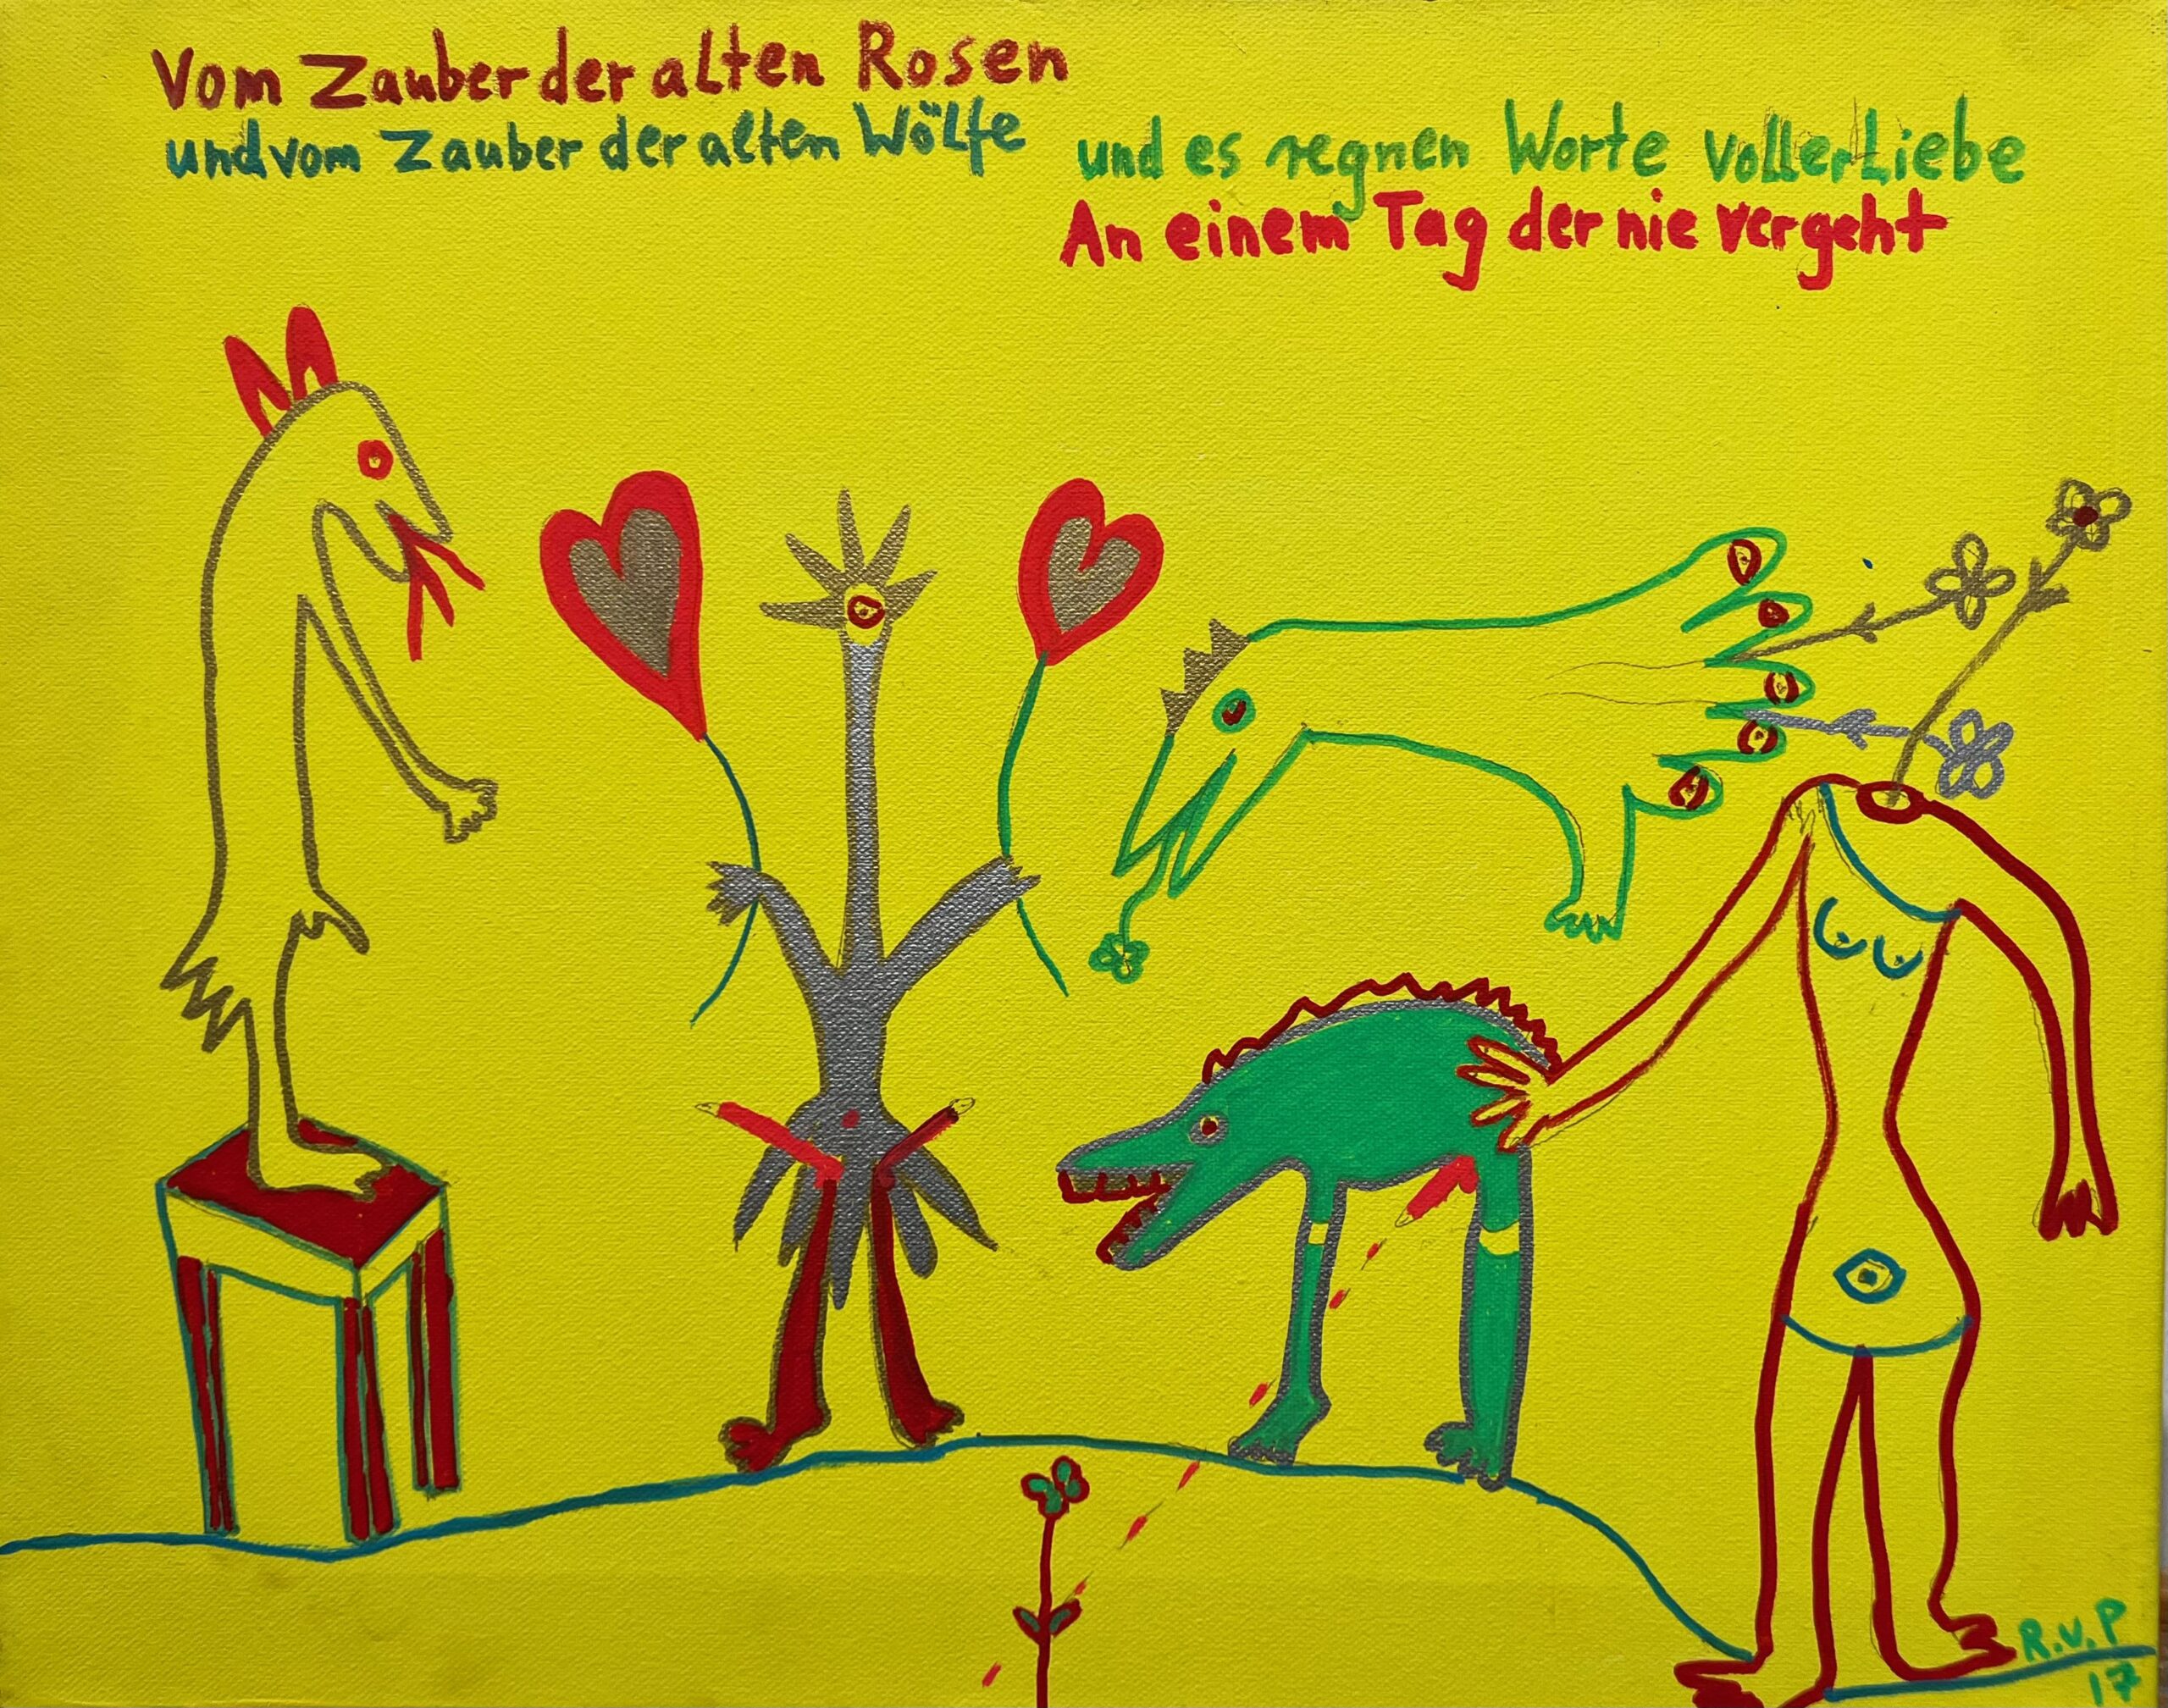 Vom Zauber der alten Rosen
und vom Zauber der alten Wölfe
und es regnen Worte voller Liebe
An einem Tag der nie vergeht
R.V.P
17